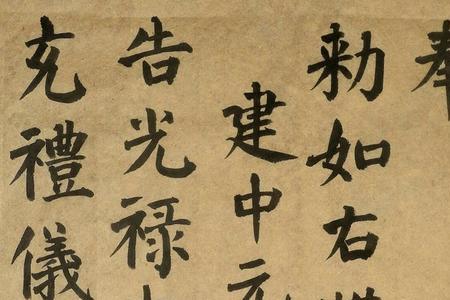 奉
勅如右
建中元
告光禄
充禮儀